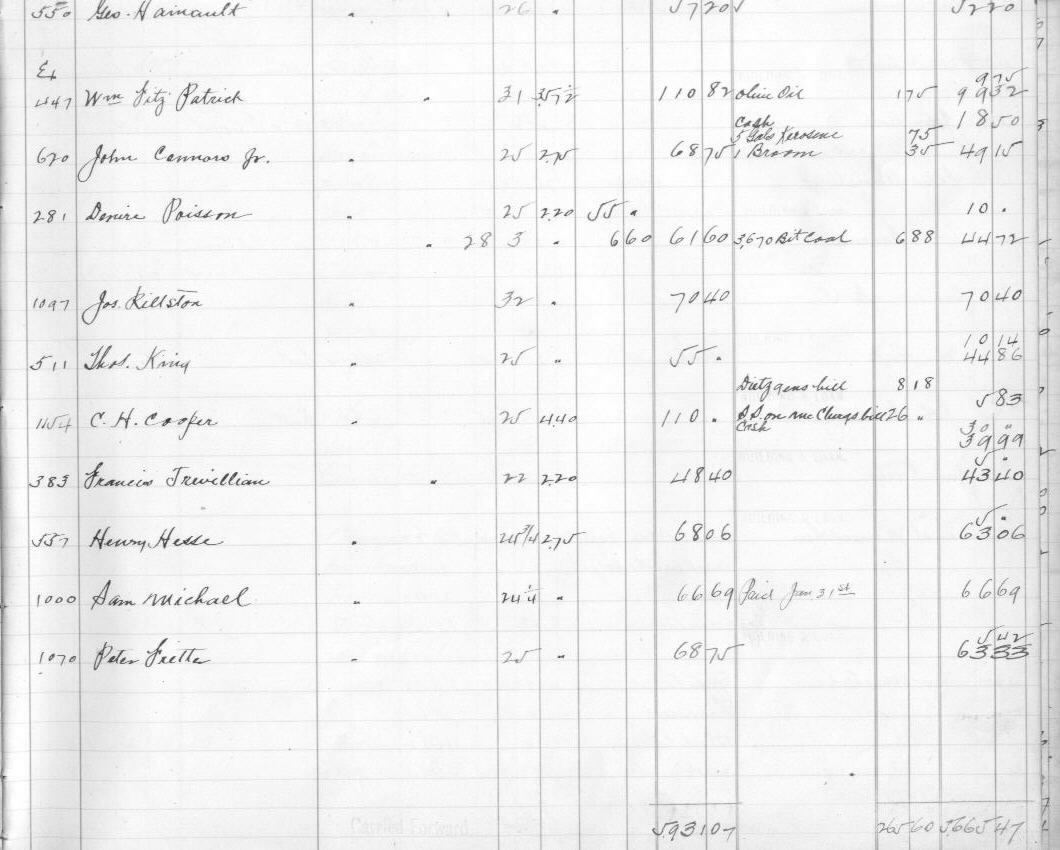 550 Geo. Hainault " " 26 " 5720 5220
Ex
975
447 Wm Fitz Patrick " 31 357½ 11082 Olive Oil 175 9932
Cash 1850
5 Gals Kerosene 75
620 John Connors Jr. " 25 275 6875 1 Broom 35 4915
281 Desire Poisson " 25 220 55 " 10 "
" 28 3 " 660 6160 3,670 Bit Coal 688 4472
1097 Jos. Killston " 32 " 7040 7040
1014
511 Thos. King " 25 " 55 " 4486
Dietzgens bill 818
583
1154 C. H. Cooper " 25 440 110 " bill 26 "
Cash 30 "
3999
5 "
383 Francis Trevillian " 22 220 4840 4340
5 "
557 Henry Hesse " 24¾ 275 6806 6306
1000 Sam Michael " 24¼ " 6669 Paid Jan 31st 6669
542
1070 Peter Frette " 25 " 6875 6333
Carried Forward
593107 26560 566547